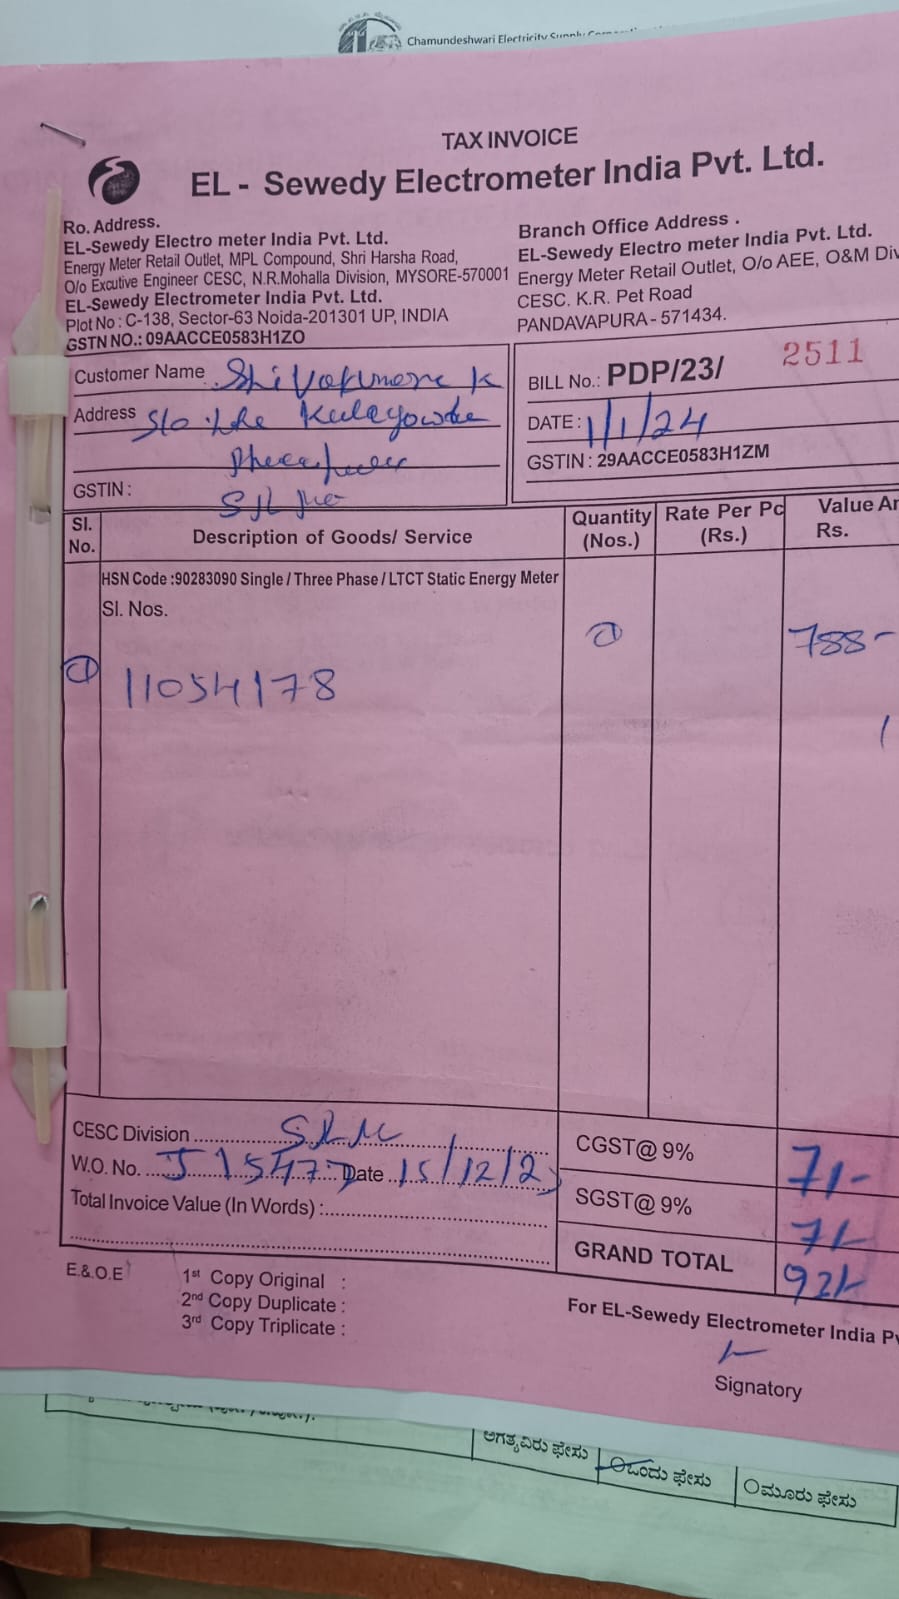 Chamundeshwari Electricity Supply
TAX INVOICE
EL - Sewedy Electrometer India Pvt. Ltd.
Ro. Address.
EL-Sewedy Electro meter India Pvt. Ltd.
Energy Meter Retail Outlet, MPL Compound, Shri Harsha Road,
O/o Excutive Engineer CESC, N.R.Mohalla Division, MYSORE-570001
EL-Sewedy Electrometer India Pvt. Ltd.
Plot No : C-138, Sector-63 Noida-201301 UP, INDIA
GSTN NO.: 09AACCE0583H1ZO
Branch Office Address .
EL-Sewedy Electro meter India Pvt. Ltd.
Energy Meter Retail Outlet, O/o AEE, O&M Div
CESC. K.R. Pet Road
PANDAVAPURA - 571434.
Customer Name K
Address S/o
GSTIN :
BILL No.: PDP/23/ 2511
DATE : 1/1/24
GSTIN : 29AACCE0583H1ZM
Sl. No. Description of Goods/ Service Quantity (Nos.) Rate Per Pc (Rs.) Value Rs.
HSN Code :90283090 Single / Three Phase / LTCT Static Energy Meter
Sl. Nos.
788-
1 11054178
CESC Division
W.O. No. Date 15/12/2
Total Invoice Value (In Words) :
CGST@ 9% 71-
SGST@ 9% 71-
GRAND TOTAL
E.& O.E
1st Copy Original :
2nd Copy Duplicate :
3rd Copy Triplicate :
For EL-Sewedy Electrometer India
Signatory
ಅಗತ್ಯವಿರು ಫೇಸು
ಒಂದು ಫೇಸು
ಮೂರು ಫೇಸು